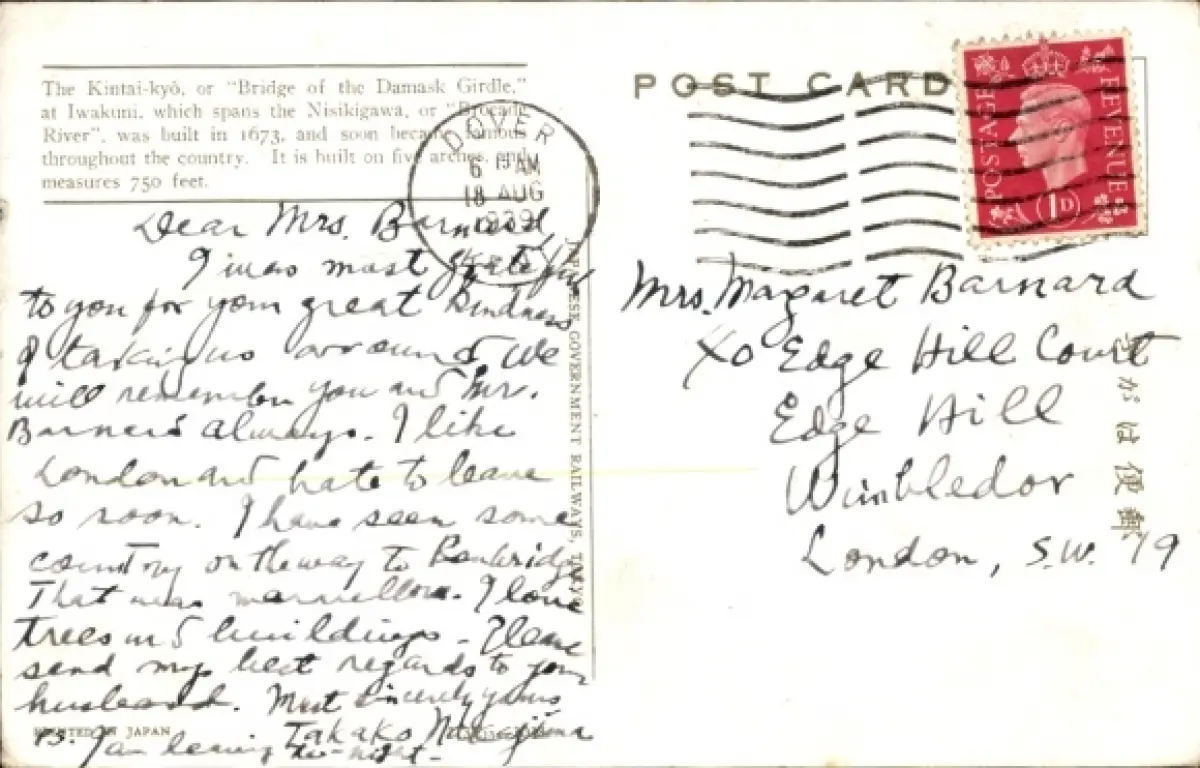 The Kintai-kyō, or "Bridge of the Damask Girdle,"
at Iwakuni, which spans the Nisikigawa, or "Brocade
River", was built in 1673, and soon became famous
throughout the country. It is built on five arches, and
measures 750 feet.
Dear Mrs. Barnard,
I was most grateful
to you for your great kindness
of taking us around. We
will remember you and Mr.
Barnard always. I like
London and hate to leave
so soon. I have seen some
country on the way to
That was marvellous. I love
trees and buildings. Please
send my best regards to your
husband. Most sincerely yours
Takako
PS. I am leaving to-night.
PRINTED IN JAPAN
JAPANESE GOVERNMENT RAILWAYS, TOKYO
DOVER
6 AM
18 AUG
1939
POST CARD
POSTAGE REVENUE
1D
Mrs. Magaret Barnard
c/o Edge Hill Court
Edge Hill
Wimbledon
London, S.W. 19
きがは便郵